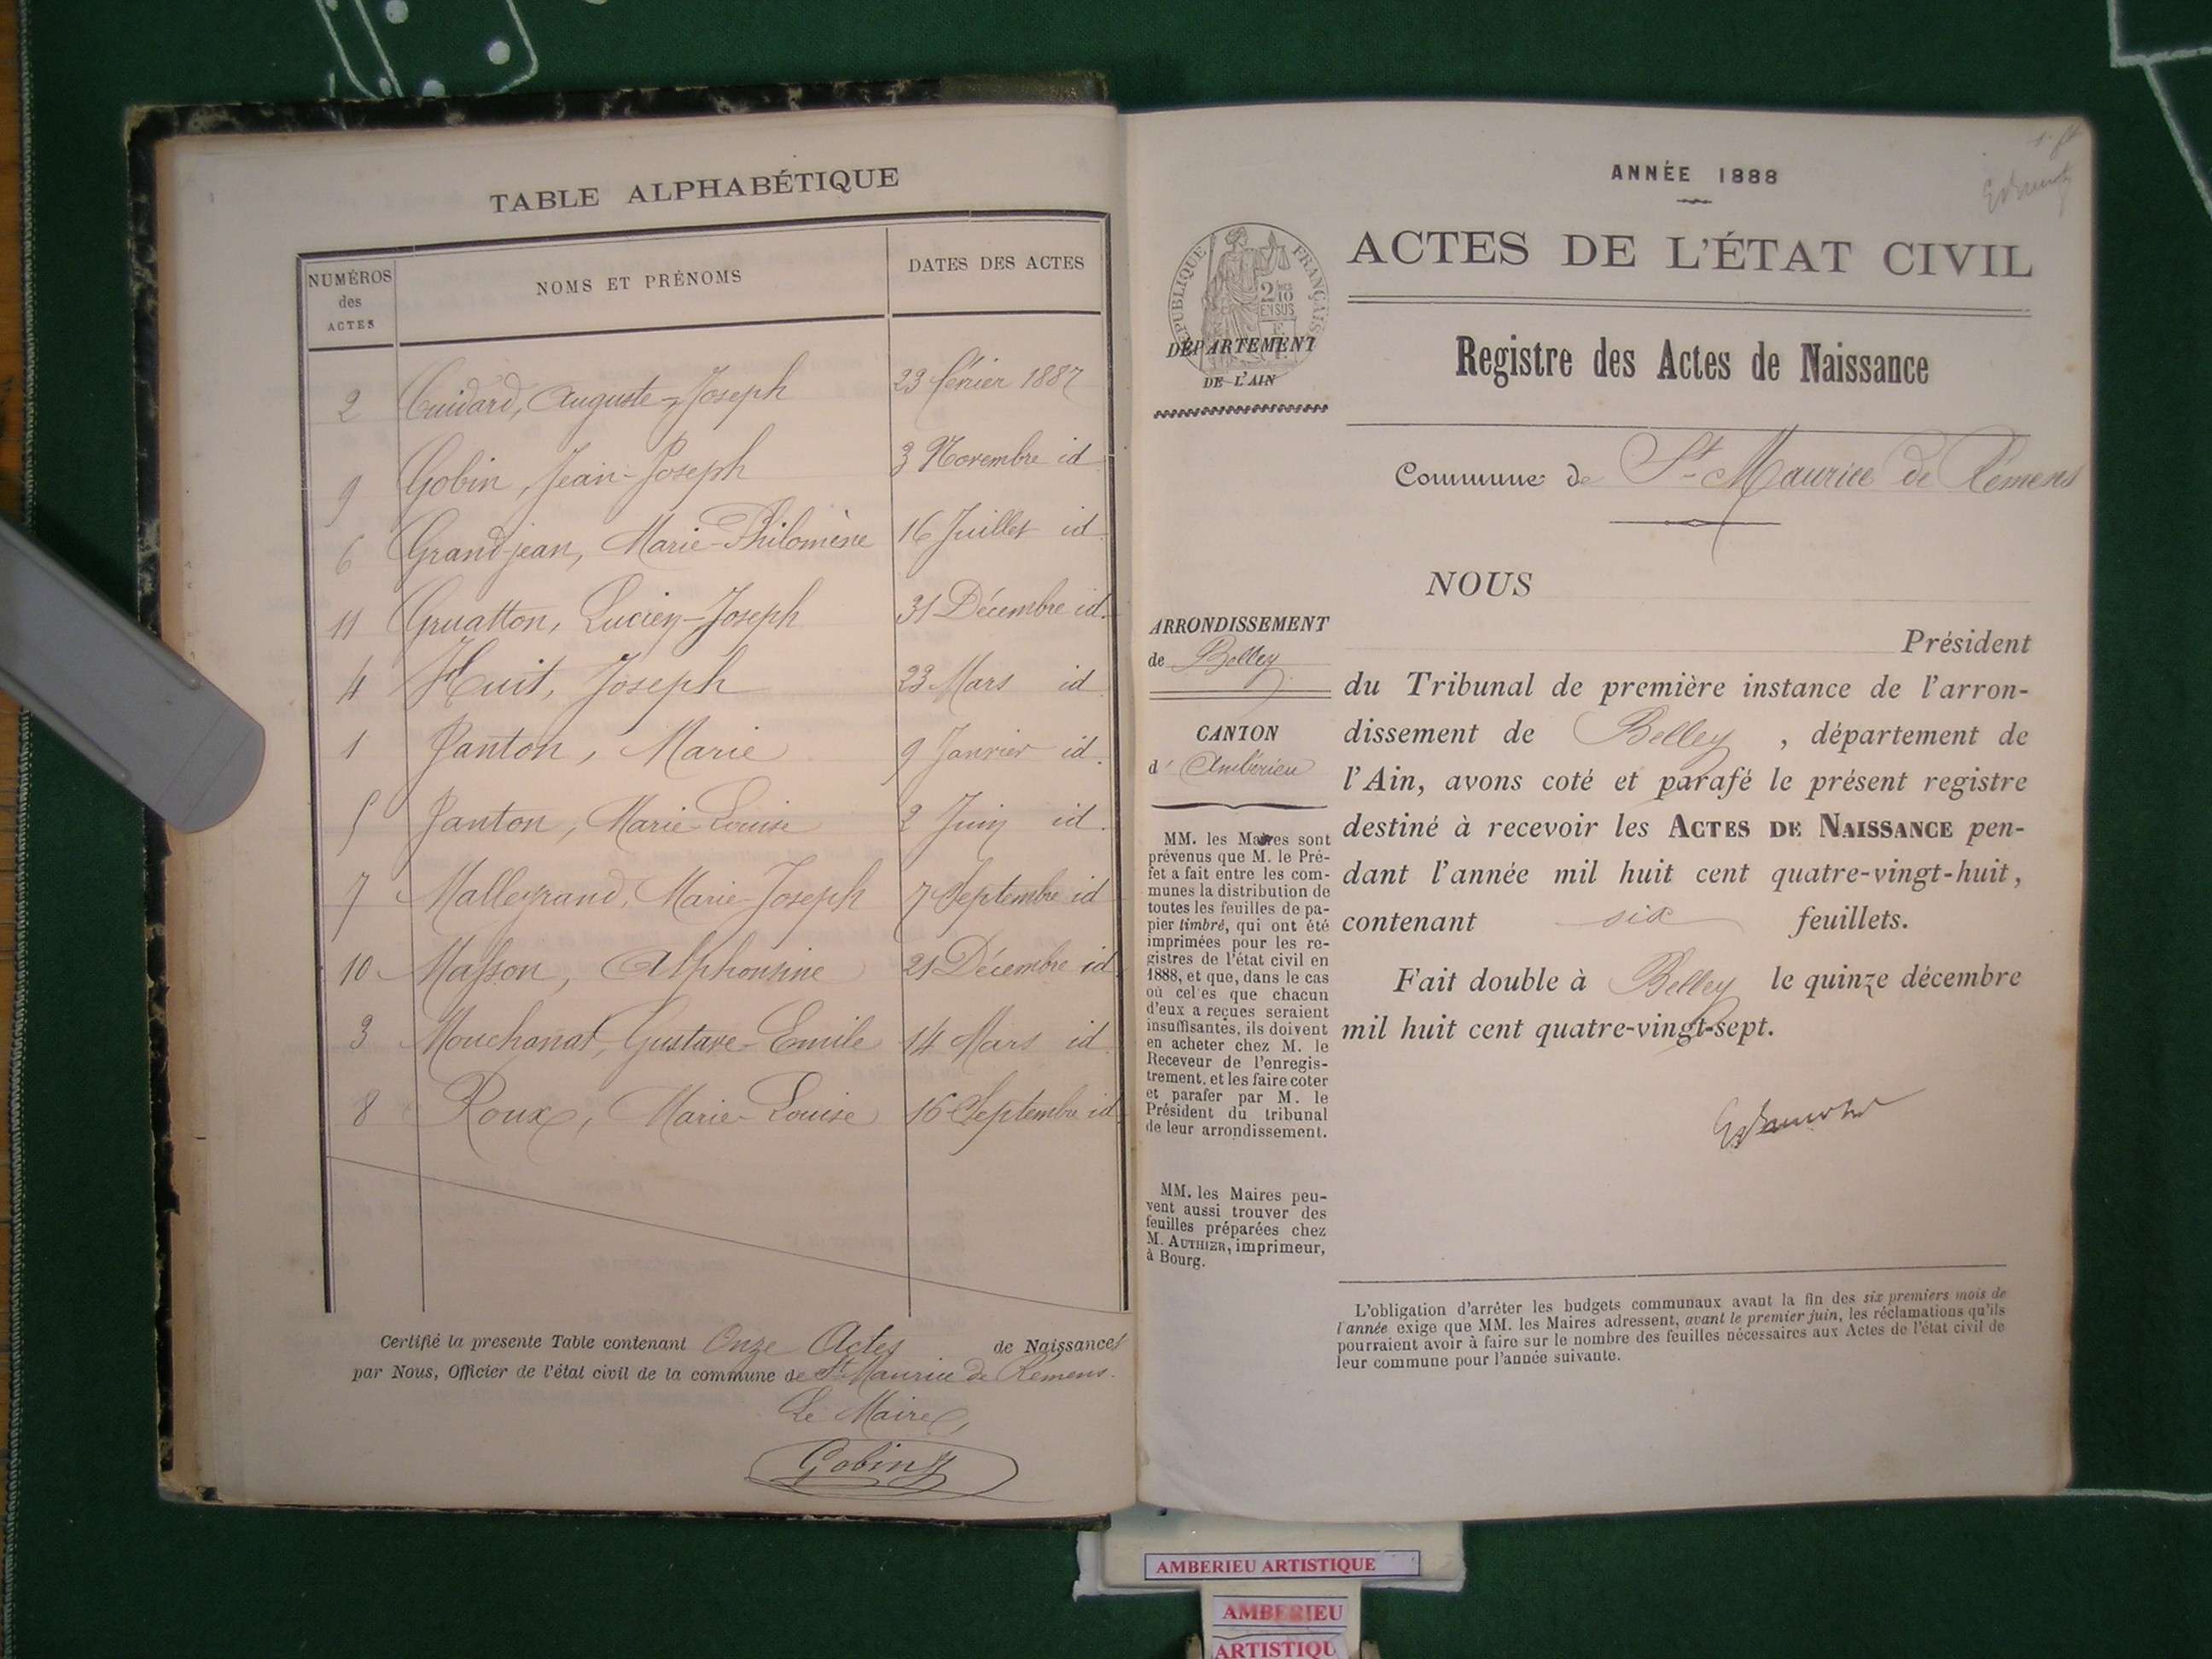 TABLE ALPHABÉTIQUE
NUMÉROS
des
ACTES
NOMS ET PRÉNOMS
DATES DES ACTES
2 Cuidard, Auguste-Joseph 23 février 1887
9 Gobin, Jean-Joseph 3 Novembre id
6 Grandjean, Marie-Philomène 16 Juillet id
11 Gruatton, Lucien-Joseph 31 Décembre id.
4 Huit, Joseph 23 Mars id
1 Janton, Marie 9 Janvier id.
5 Janton, Marie-Louise 2 Juin id.
7 Malleyrand, Marie-Joseph 7 Septembre id
10 Masson, Alphonsine 21 Décembre id
3 Mouchanat, Gustave-Emile 14 Mars id
8 Roux, Marie-Louise 16 Septembre id
Certifié la presente Table contenant Onze Actes de Naissances
par Nous, Officier de l'état civil de la commune de St Maurice de Rémens.
Le Maire,
Gobin
ANNÉE 1888
RÉPUBLIQUE FRANÇAISE
2/10
EN SUS
DÉPARTEMENT
DE L'AIN
ACTES DE L'ÉTAT CIVIL
Registre des Actes de Naissance
Commune de St Maurice de Rémens
ARRONDISSEMENT
de Belley
CANTON
d' Ambérieu
MM. les Maires sont
prévenus que M. le Pré-
fet a fait entre les com-
munes la distribution de
toutes les feuilles de pa-
pier timbré, qui ont été
imprimées pour les re-
gistres de l'état civil en
1888, et que, dans le cas
où cel'es que chacun
d'eux a reçues seraient
insuffisantes, ils doivent
en acheter chez M. le
Receveur de l'enregis-
trement, et les faire coter
et parafer par M. le
Président du tribunal
de leur arrondissement.
MM. les Maires peu-
vent aussi trouver des
feuilles préparées chez
M. AUTHIER, imprimeur,
à Bourg.
NOUS
Président
du Tribunal de première instance de l'arron-
dissement de Belley , département de
l'Ain, avons coté et parafé le présent registre
destiné à recevoir les ACTES DE NAISSANCE pen-
dant l'année mil huit cent quatre-vingt-huit,
contenant six feuillets.
Fait double à Belley le quinze décembre
mil huit cent quatre-vingt-sept.
L'obligation d'arrêter les budgets communaux avant la fin des six premiers mois de
l'année exige que MM. les Maires adressent, avant le premier juin, les réclamations qu'ils
pourraient avoir à faire sur le nombre des feuilles nécessaires aux Actes de l'état civil de
leur commune pour l'année suivante.
AMBERIEU ARTISTIQUE
AMBERIEU
ARTISTIQU